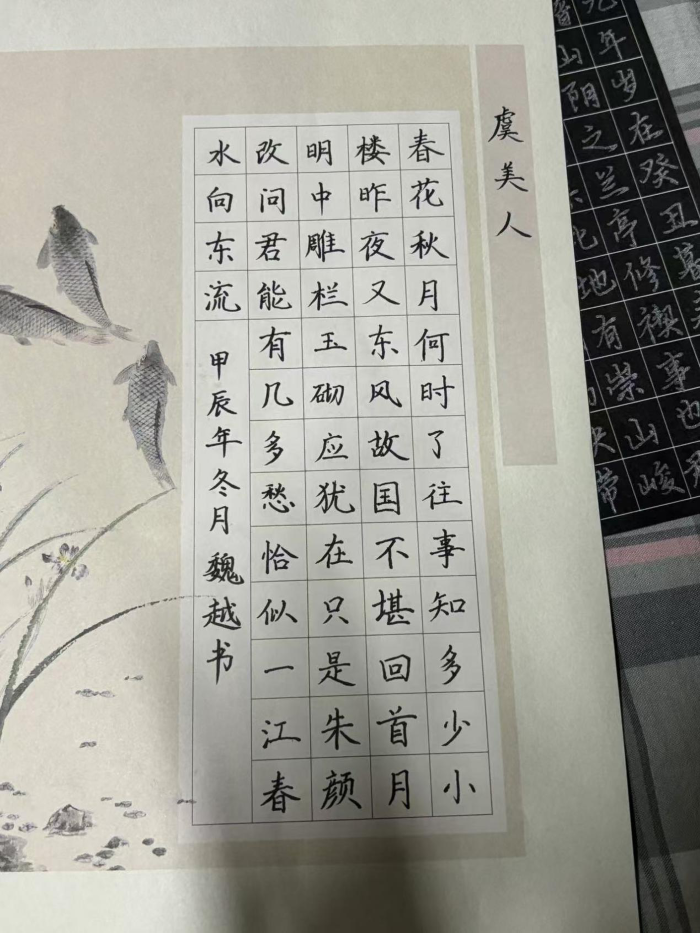 虞美人
春花秋月何时了往事知多少小
楼昨夜又东风故国不堪回首月
明中雕栏玉砌应犹在只是朱颜
改问君能有几多愁恰似一江春
水向东流
甲辰年冬月魏越书
年岁在癸丑暮
山阴之兰亭修禊事也
此地有崇山峻
带